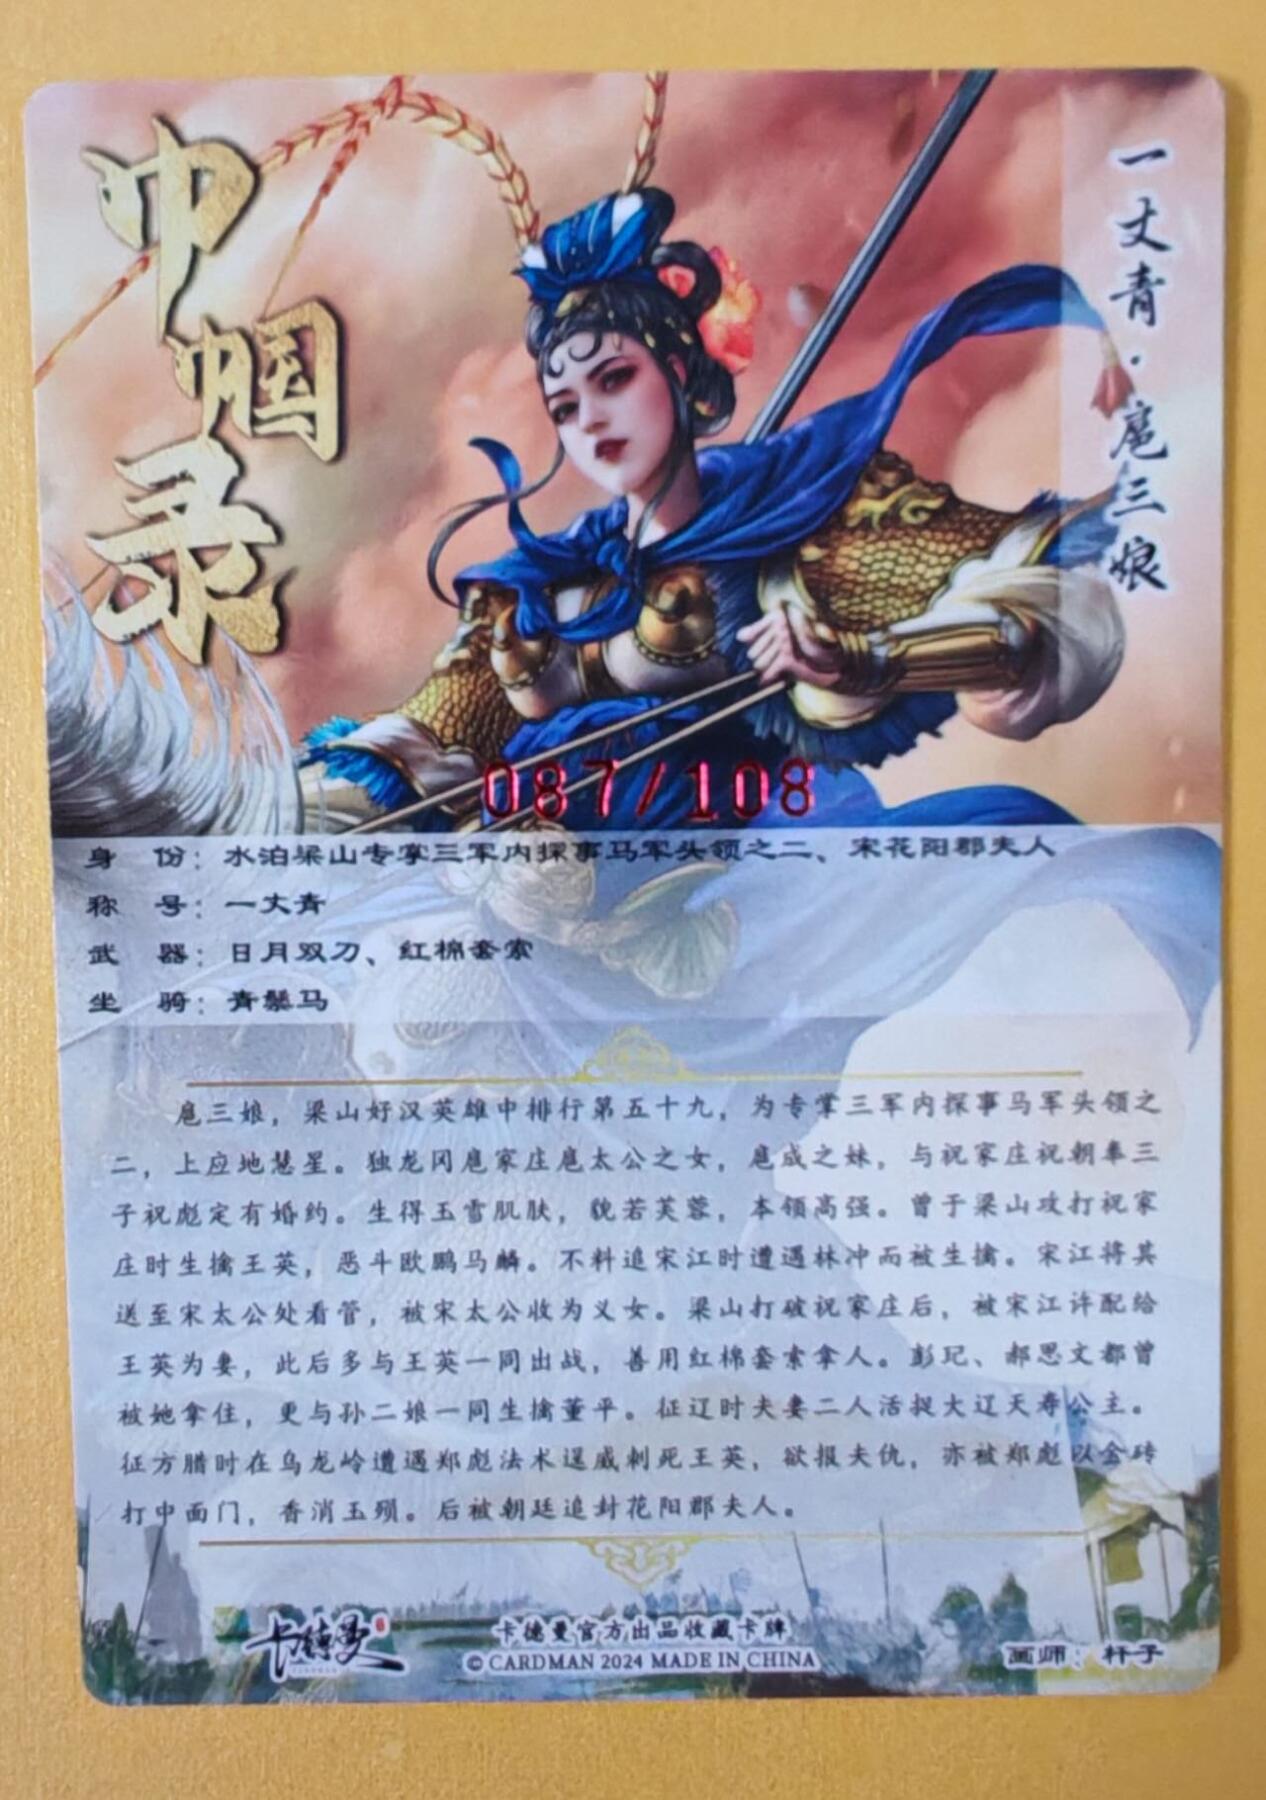 巾帼录
一丈青·扈三娘
087/108
身 份：水泊梁山专掌三军内探事马军头领之二、宋花阳郡夫人
称 号：一丈青
武 器：日月双刀、红棉套索
坐 骑：青鬃马
扈三娘，梁山好汉英雄中排行第五十九，为专掌三军内探事马军头领之
二，上应地慧星。独龙冈扈家庄扈太公之女，扈成之妹，与祝家庄祝朝奉三
子祝彪定有婚约。生得玉雪肌肤，貌若芙蓉，本领高强。曾于梁山攻打祝家
庄时生擒王英，恶斗欧鹏马麟。不料追宋江时遭遇林冲而被生擒。宋江将其
送至宋太公处看管，被宋太公收为义女。梁山打破祝家庄后，被宋江许配给
王英为妻，此后多与王英一同出战，善用红棉套索拿人。彭玘、郝思文都曾
被她拿住，更与孙二娘一同生擒董平。征辽时夫妻二人活捉大辽天寿公主。
征方腊时在乌龙岭遭遇郑彪法术逞威刺死王英，欲报夫仇，亦被郑彪以金砖
打中面门，香消玉殒。后被朝廷追封花阳郡夫人。
卡德曼
卡德曼官方出品收藏卡牌
© CARDMAN 2024 MADE IN CHINA
画师：杆子